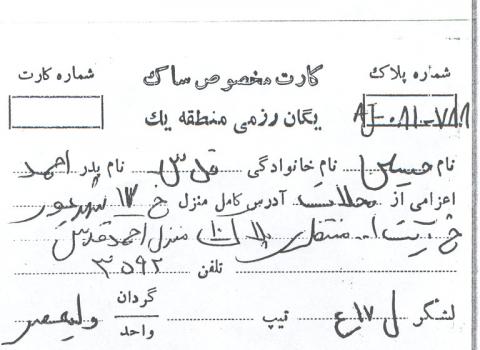 شماره پلاک کارت مخصوص ساک شماره کارت
AJ-081-788 یگان رزمی منطقه یک
نام حسین نام خانوادگی قدس نام پدر احمد
اعزامی از محلات آدرس کامل منزل خ ۱۷ شهریور
خ آیت ا... منتظری پلاک ۱۰ منزل احمد قدس
تلفن ۳۵۹۲
لشگر ل ۱۷ ع تیپ گردان واحد ولیعصر